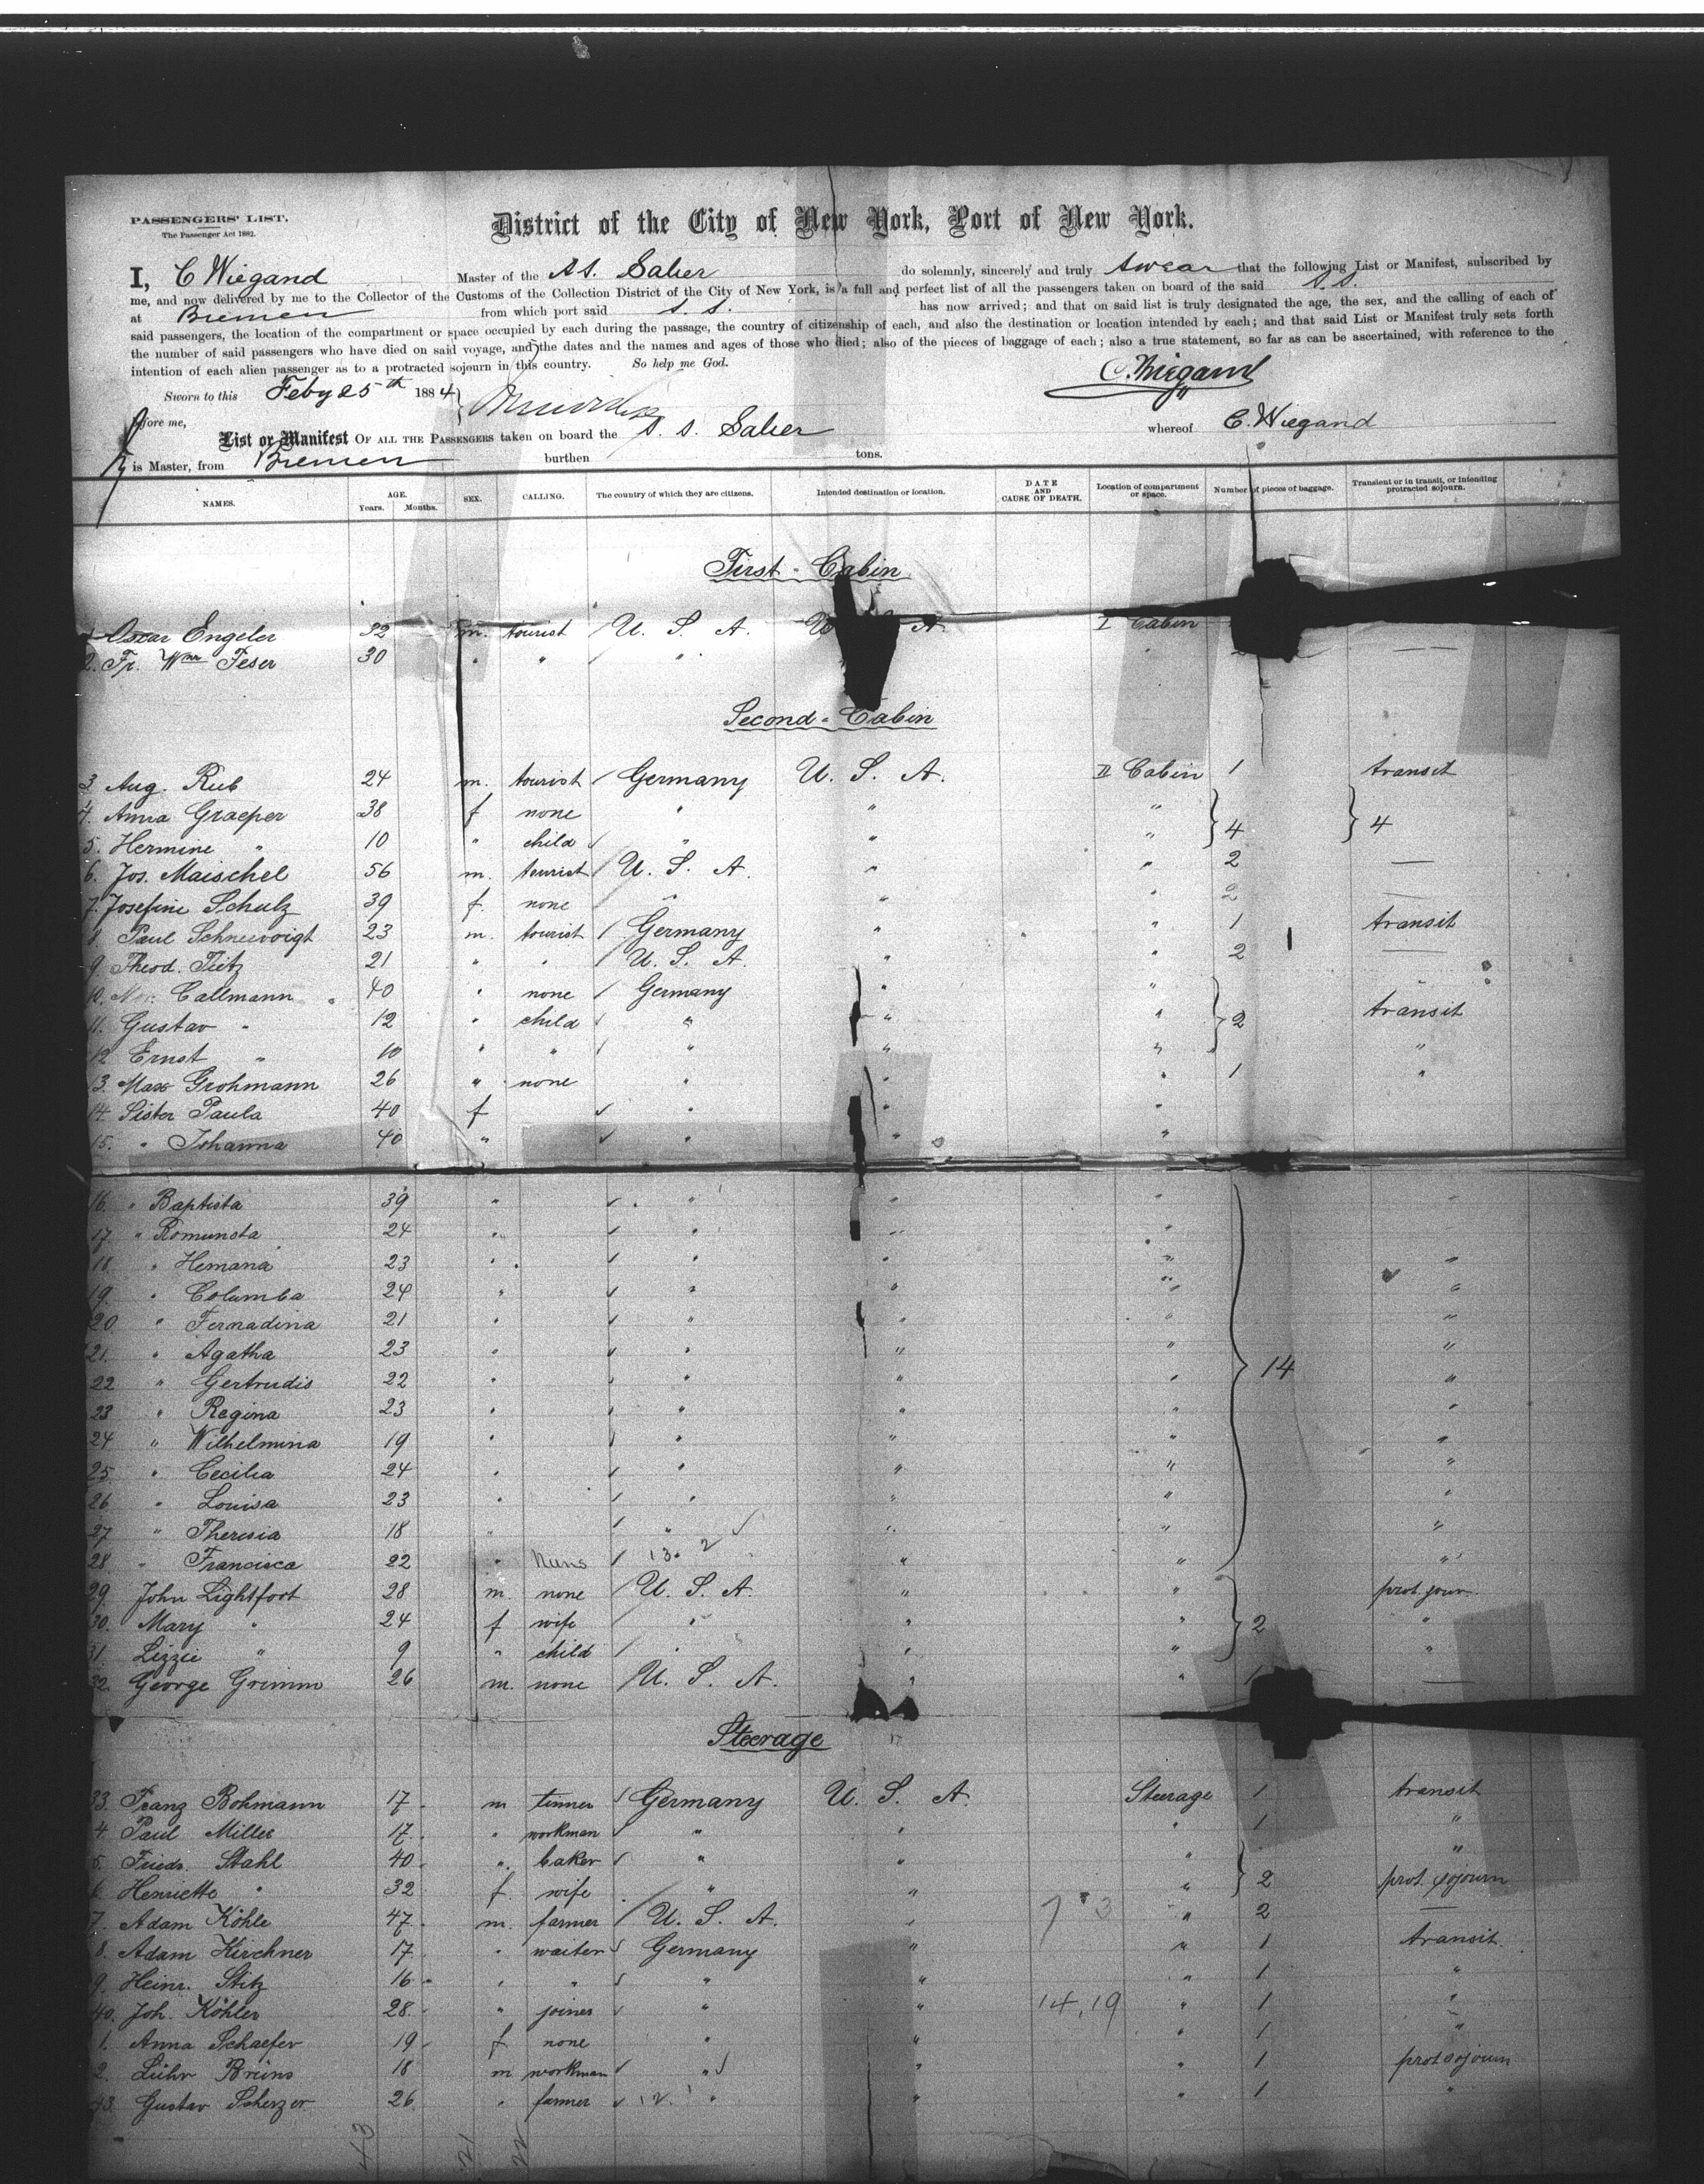 PASSENGERS' LIST.
The Passenger Act 1882.
District of the City of New York, Port of New York.
I, C Wiegand Master of the S. S. Salier do solemnly, sincerely and truly swear that the following List or Manifest, subscribed by
me, and now delivered by me to the Collector of the Customs of the Collection District of the City of New York, is a full and perfect list of all the passengers taken on board of the said S. S.
at Bremen from which port said S. S. has now arrived; and that on said list is truly designated the age, the sex, and the calling of each of
said passengers, the location of the compartment or space occupied by each during the passage, the country of citizenship of each, and also the destination or location intended by each; and that said List or Manifest truly sets forth
the number of said passengers who have died on said voyage, and the dates and the names and ages of those who died; also of the pieces of baggage of each; also a true statement, so far as can be ascertained, with reference to the
intention of each alien passenger as to a protracted sojourn in this country. So help me God.
C. Wiegand
Sworn to this Feby 25th 1884
fore me,
List or Manifest OF ALL THE PASSENGERS taken on board the S. S. Salier whereof C. Wiegand
is Master, from Bremen burthen tons.
NAMES. AGE. Years. Months. SEX. CALLING. The country of which they are citizens. Intended destination or location. DATE AND CAUSE OF DEATH. Location of compartment or space. Number of pieces of baggage. Transient or in transit, or intending protracted sojourn.
First - Cabin
1 Oscar Engeler 32 m. tourist / U. S. A. U A. I Cabin
2. Fr. Wm Feser 30 " " / " —
Second - Cabin
3 Aug. Rub 24 m. tourist / Germany U. S. A. II Cabin 1 transit
4. Anna Graeper 38 f none " " " } 4 } 4
5. Hermine " 10 " child " " "
6. Jos. Maischel 56 m. tourist / U. S. A. " " 2 —
7. Josefine Schulz 39 f. none / " " " 2 —
8. Paul Schneevoigt 23 m. tourist / Germany " " 1 transit
9. Theod. Tietz 21 " " / U. S. A. " " 2 —
10. Callmann 40 " none / Germany " " } 2
11. Gustav " 12 " child " " " transit
12. Ernst " 10 " " / " " " "
13. Max Grohmann 26 " none " " " 1 "
14. Sister Paula 40 f ✓ " " "
15. " Johanna 40 " ✓ " " "
16. " Baptista 39 " ✓ " " " "
17. " Romunda 24 " ✓ " " "
18. " Hemana 23 " ✓ " " " "
19. " Columba 24 " ✓ " " " "
20 " Fernadina 21 " ✓ " " " "
21. " Agatha 23 " ✓ " " " "
22 " Gertrudis 22 " " " " } 14 "
23 " Regina 23 " " " " "
24 " Wilhelmina 19 " " " " "
25. " Cecilia 24 " ✓ " " " "
26 " Louisa 23 " / " " " "
27 " Theresia 18 " / " ✓ " " "
28 " Francisca 22 " Nuns / 13. 2 " " "
29. John Lightfoot 28 m. none / U. S. A. " " prot. jour.
30. Mary " 24 f wife / " " " } 2 "
31. Lizzie " 9 " child / " " " "
32. George Grimm 26 m. none / U. S. A. " " 1 —
Steerage
33. Franz Bohmann 17 m tinner Germany U. S. A. Steerage 1 transit
4. Paul Miller 17. " workman " " " 1 "
5. Friedr. Stahl 40 " baker " " " } 2 "
6. Henriette " 32 f. wife " " " prot. sojourn
7. Adam Köhle 47 m. farmer / U. S. A. " 7 3 " 2 —
8. Adam Kirchner 17 " waiter Germany " " 1 transit.
9. Heinr. Stitz 16 " " " " " 1 "
40. Joh. Köhler 28 " joiner ✓ " " 14, 19 " 1 "
1. Anna Schaefer 19 f none " " " 1 "
2. Lühr Brüns 18 m workman ✓ " ✓ " " 1 prot sojourn
43. Gustav Scherzer 26 " farmer ✓ 12. " " " 1 "
43 21 22